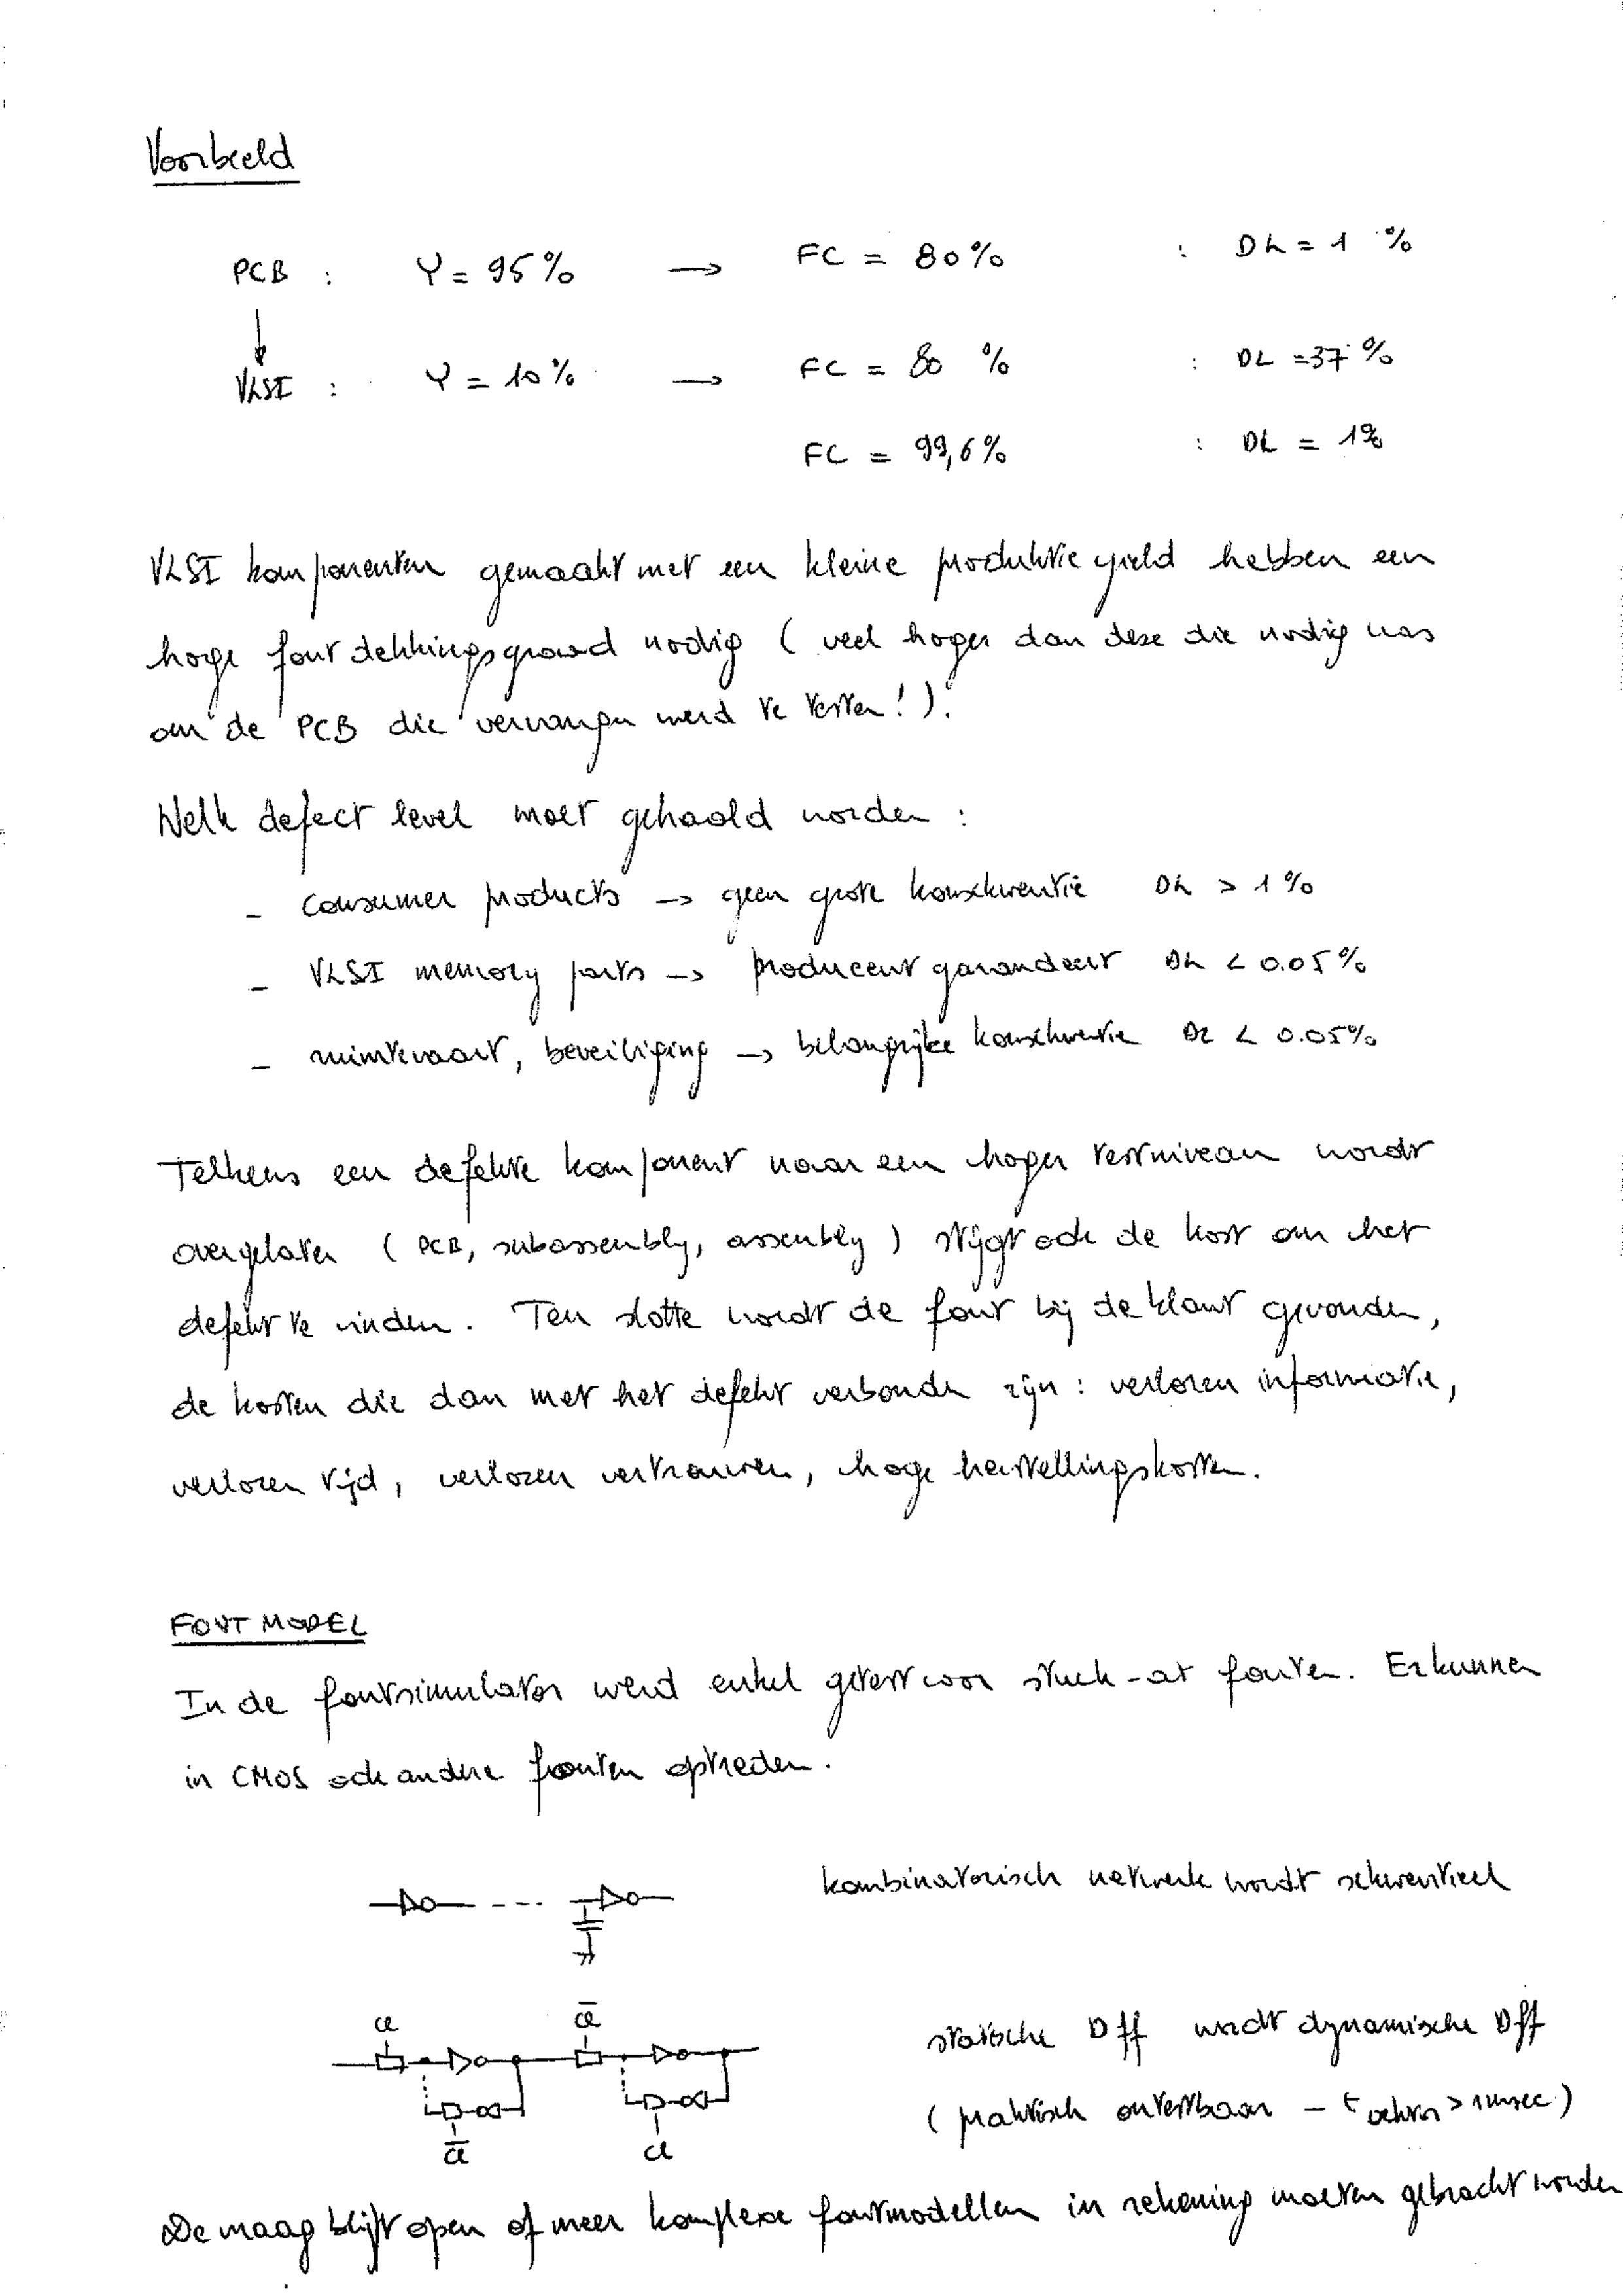 Voorbeeld
PCB : Y = 95% → FC = 80% : DL = 1 %
↓
VLSI : Y = 10% → FC = 80 % : DL = 37 %
FC = 99,6% : DL = 1%
VLSI komponenten gemaakt met een kleine produktie yield hebben een
hoge fout dekkingsgraad nodig ( veel hoger dan deze die nodig was
om de PCB die vervangen werd te testen! ).
Welk defect level moet gehaald worden :
- consumer products → geen grote konsekwentie DL > 1 %
- VLSI memory parts → producent garandeert DL < 0.05 %
- ruimtevaart, beveiliging → belangrijke konsekwentie DL < 0.05%
Telkens een defekte komponent naar een hoger testniveau wordt
overgelaten ( PCB, subassembly, assembly ) stijgt ook de kost om het
defekt te vinden. Ten slotte wordt de fout bij de klant gevonden,
de kosten die dan met het defekt verbonden zijn : verloren informatie,
verloren tijd, verloren vertrouwen, hoge herstellingskosten.
FOUT MODEL
In de foutsimulator werd enkel getest voor stuck-at fouten. Er kunnen
in CMOS ook andere fouten optreden.
kombinatorisch netwerk wordt sekwentieel
cl c̅l̅
statische Dff wordt dynamische Dff
( praktisch ontestbaar - t > 1msec )
c̅l̅ cl
De vraag blijft open of meer komplexe foutmodellen in rekening moeten gebracht worden